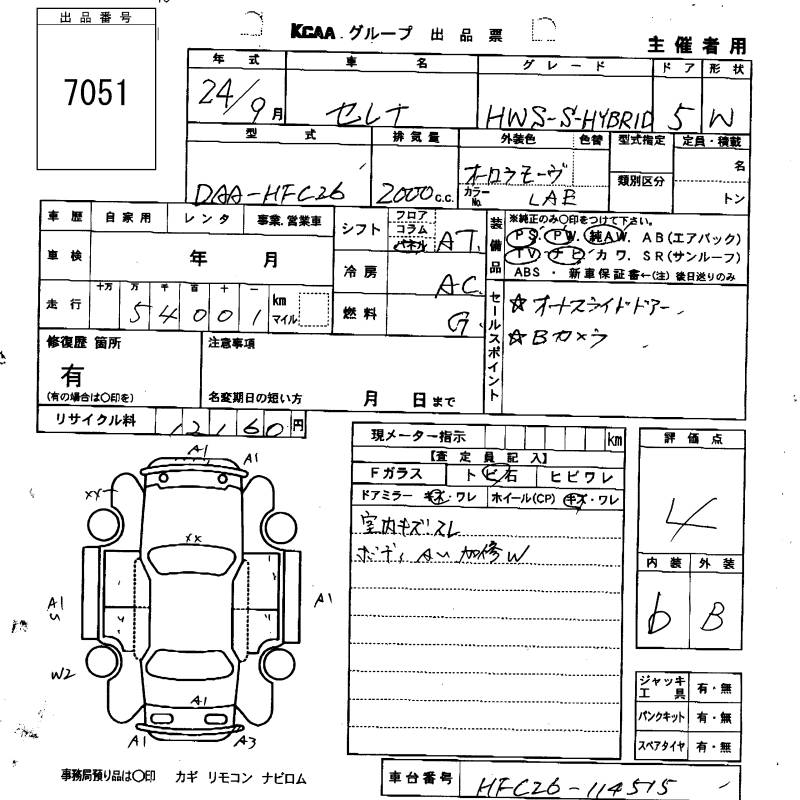 出品番号
7051
KCAA グループ 出品票
主催者用
年式 車名 グレード ドア 形状
24/9月 セレナ HWS-S-HYBRID 5 W
型式 排気量 外装色 色替 型式指定 定員・積載
オーロラモーヴ 名
DAA-HFC26 2000c.c. カラーNo. LAE 類別区分 トン
車歴 自家用 レンタ 事業.営業車 シフト フロア コラム パネル AT.
装備品 ※純正のみ○印をつけて下さい。
PS. PW. 純AW. AB(エアバック)
TV・ナビ/カワ. SR(サンルーフ)
ABS・新車保証書←(注)後日送りのみ
車検 年 月 冷房 AC.
走行 十万 万 千 百 十 一 km マイル 燃料 G.
54001
セールスポイント
☆オートスライドドアー
☆Bカメラ
修復歴 箇所 注意事項
有
(有の場合は○印を) 名変期日の短い方 月 日まで
リサイクル料 12160円
現メーター指示 km
【査定員記入】
Fガラス トビ石 ヒビワレ
ドアミラー キズ・ワレ ホイール(CP) キズ・ワレ
室内キズ!スレ
ボディ AU 加修W
評価点
4
内装 外装
b B
A1 A1
XX
XX
A1
U
A1
W2
A1
A1 A3
ジャッキ工具 有・無
パンクキット 有・無
スペアタイヤ 有・無
事務局預り品は○印 カギ リモコン ナビロム
車台番号 HFC26-114515